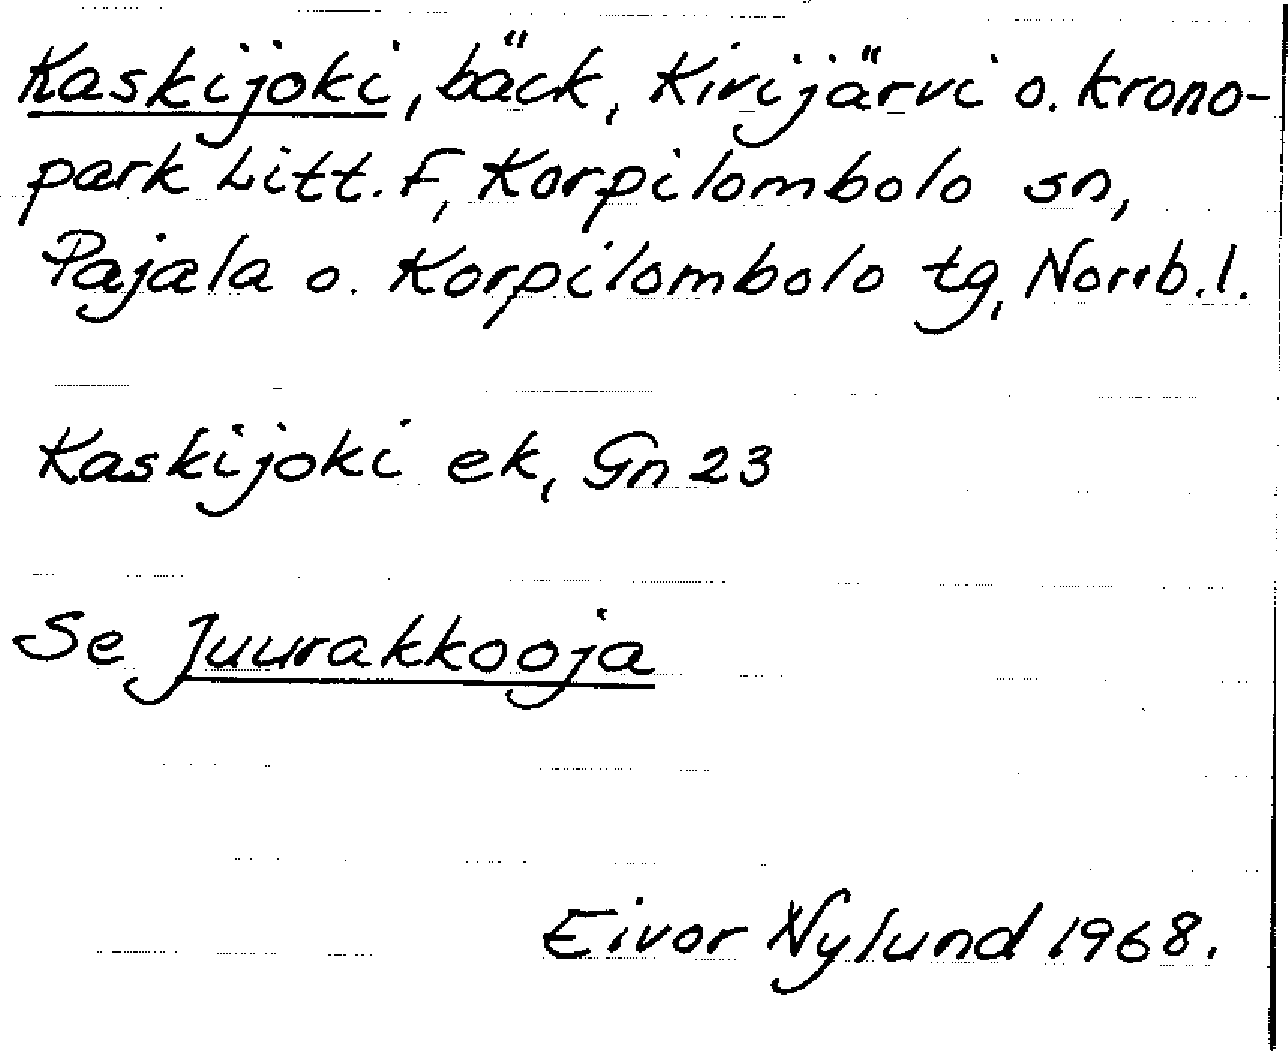 Kaskijoki, bäck, Kivijärvi o. krono-
park Litt. F, Korpilombolo sn,
Pajala o. Korpilombolo tg, Norrb.l.
Kaskijoki ek, Gn 23
Se Juurakkooja
Eivor Nylund 1968.